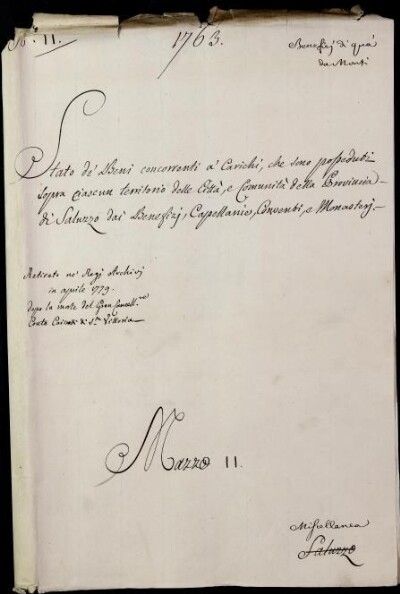 N.° 11.
1763.
Benefizj di quà
da Monti
Stato de' Beni concorrenti a' Carichi, che sono posseduti
sopra ciascun territorio delle Città, e Comunità della Provincia
di Saluzzo dai Benefizj, Capellanie, Conventi, e Monasterj.
Retirato ne' Regj Archivj
in aprile 1779.
dopo la morte del Gran Cancell.re
Conte Caissotti di S.ta Vittoria
Mazzo 11.
Miscellanea
Saluzzo